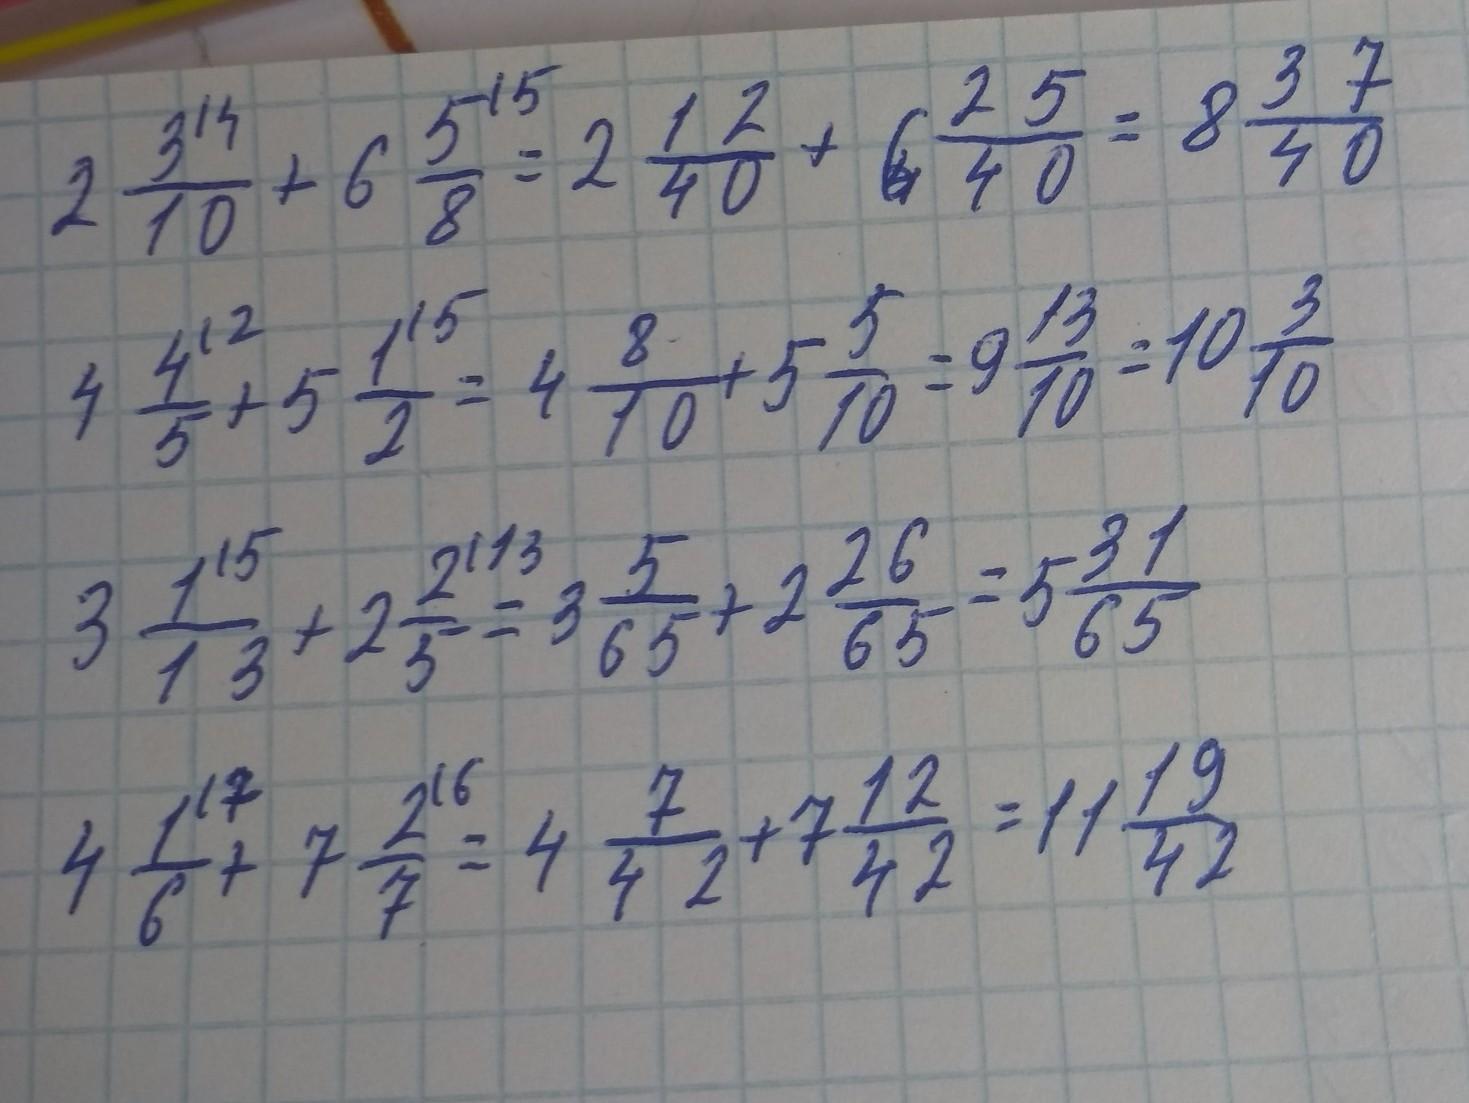 2 3⁽⁴/10 + 6 5⁽⁵/8 = 2 12/40 + 6 25/40 = 8 37/40
4 4⁽²/5 + 5 1⁽⁵/2 = 4 8/10 + 5 5/10 = 9 13/10 = 10 3/10
3 1⁽⁵/13 + 2 2⁽¹³/5 = 3 5/65 + 2 26/65 = 5 31/65
4 1⁽⁷/6 + 7 2⁽⁶/7 = 4 7/42 + 7 12/42 = 11 19/42